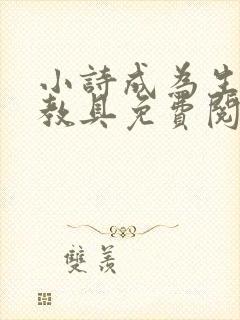 小詩成為生
教具免費閱
雙羨